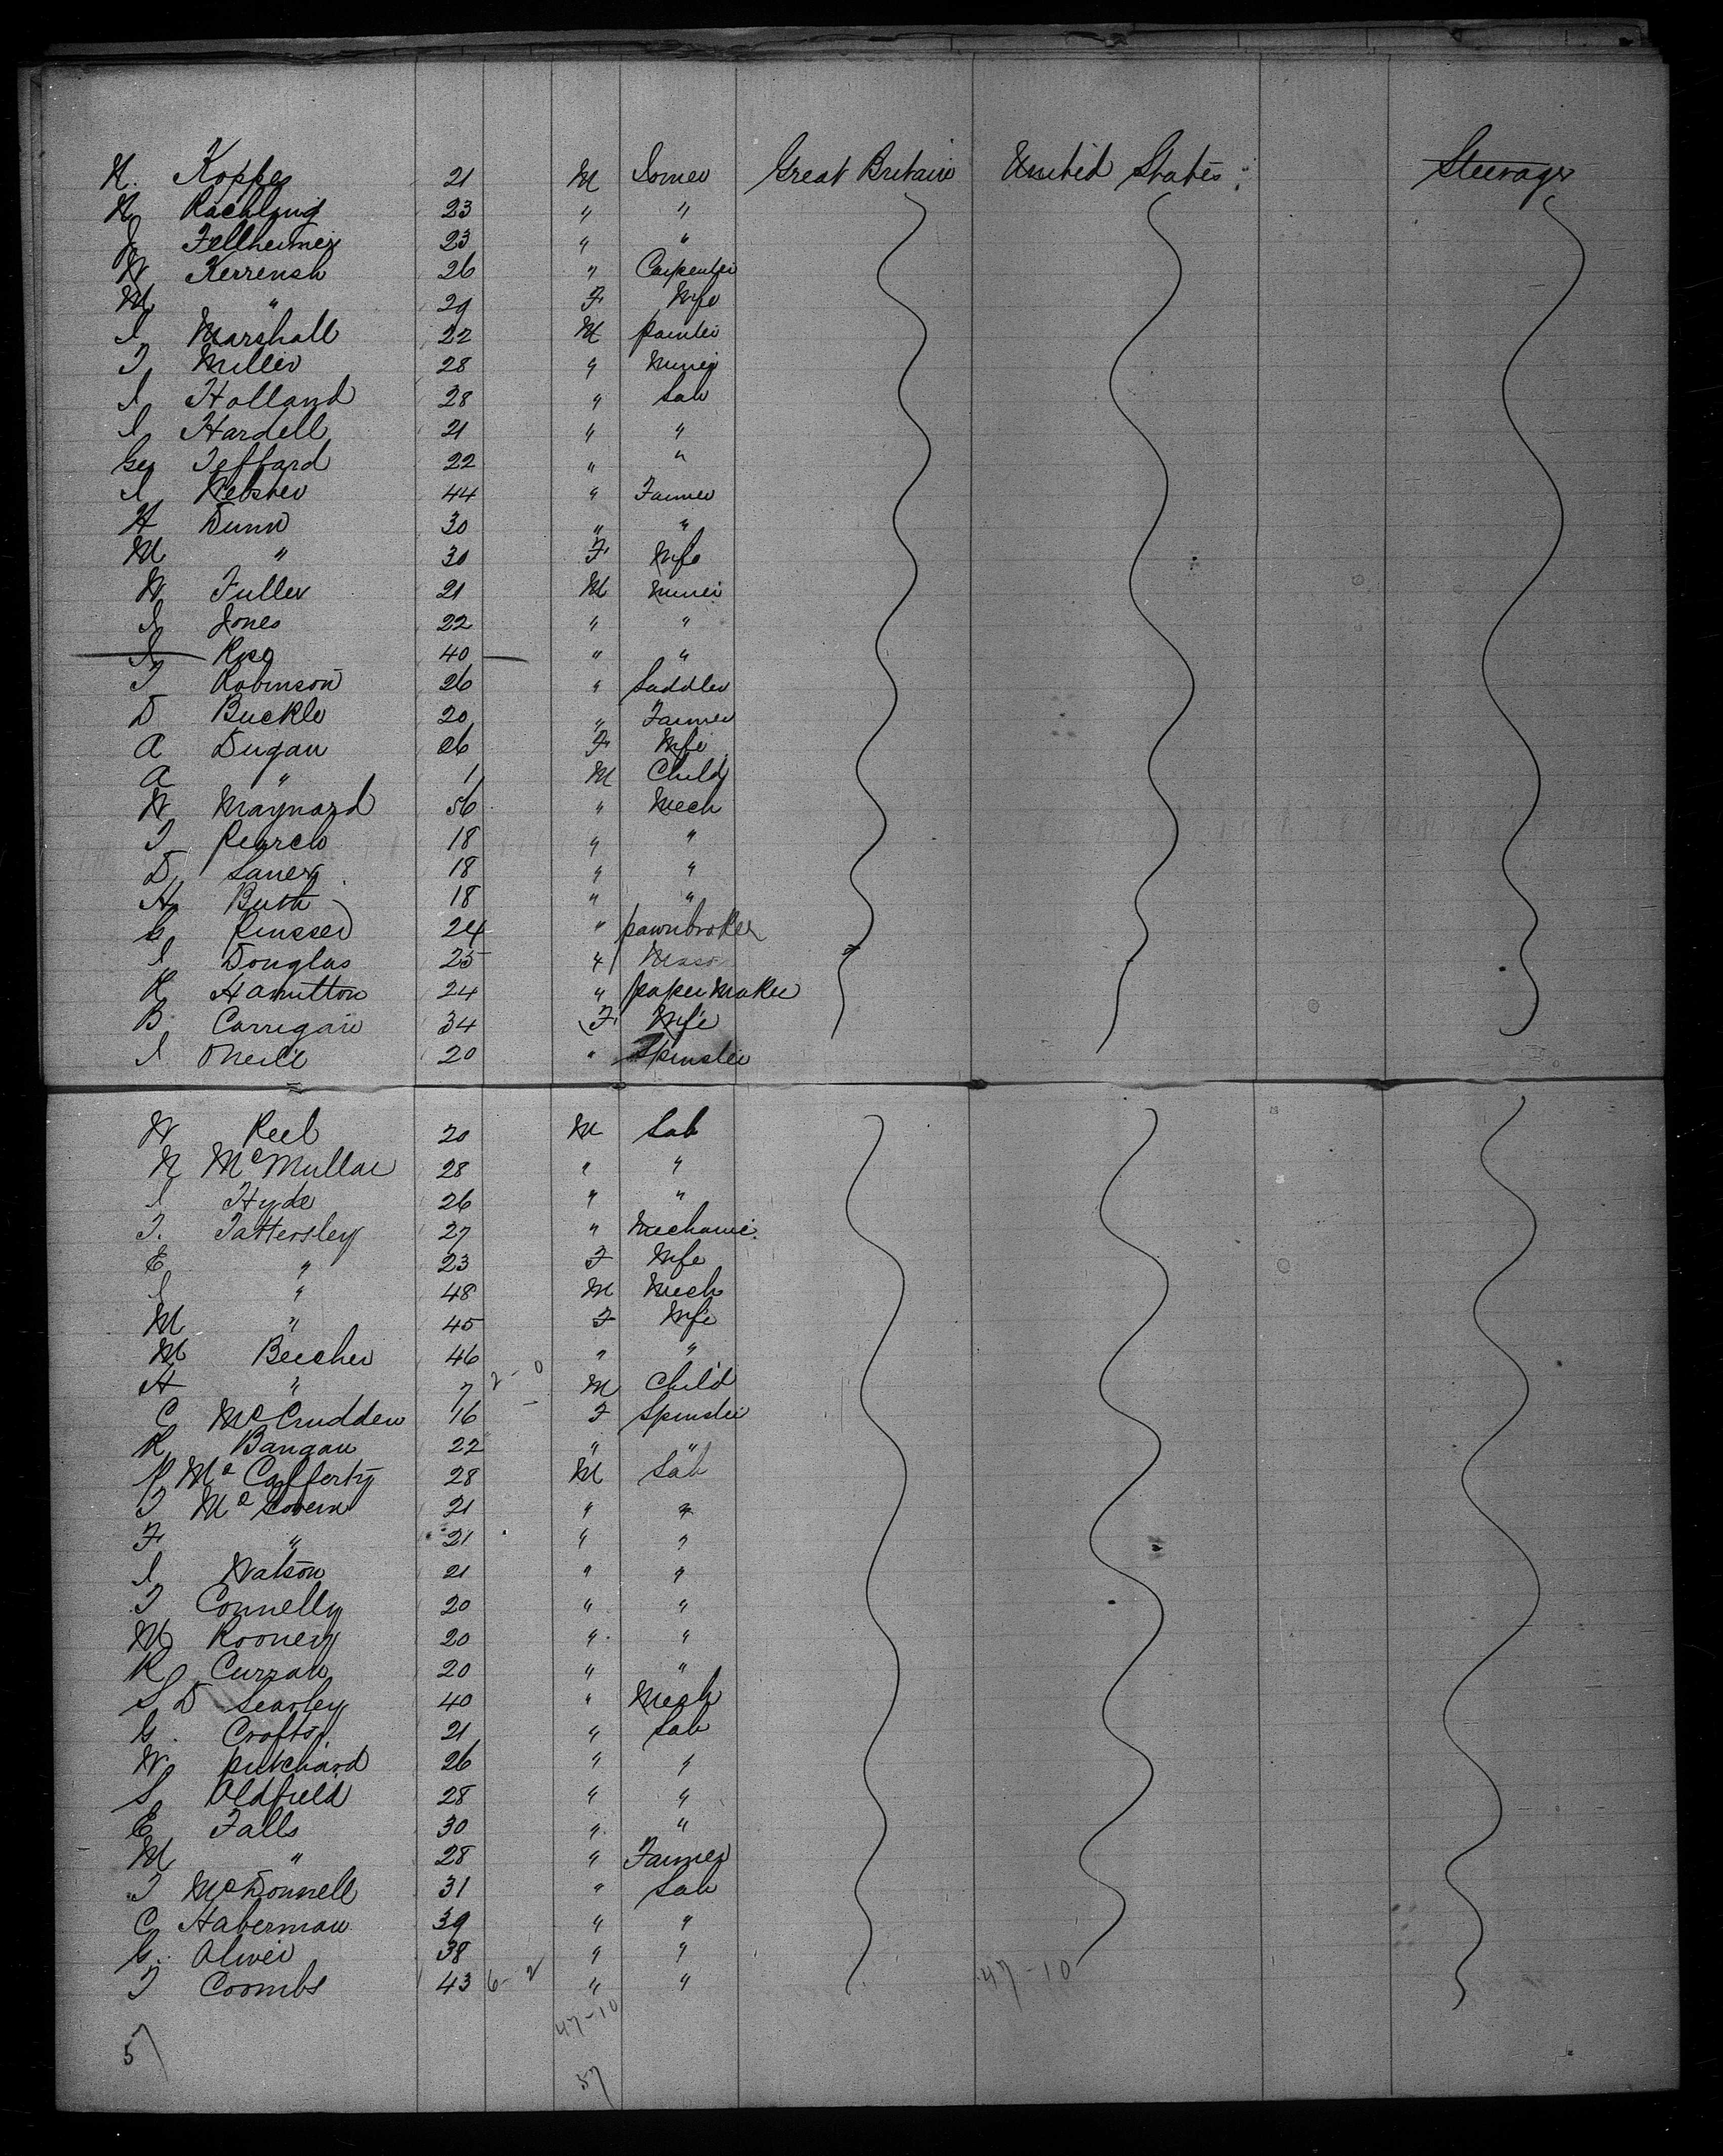 H. Koppes 21 M Great Britain United States Steerage
H 23 " "
J Fellheimer 23 " "
W 26 " Carpenter
M " 29 F Wife
J Marshall 22 M painter
T Miller 28 " Miner
J Holland 28 " Lab
J Hardell 21 " "
Geo Jeffard 22 " "
J Webster 44 " Farmer
H Dunn 30 " "
M " 30 F Wife
W Fuller 21 M Miner
J Jones 22 " "
J 40 " "
T Robinson 26 " Saddler
D Buckle 20 " Farmer
A Dugan 26 F Wife
A " 1 M Child
W Maynard 56 " Mech
T Pearce 18 " "
D 18 " "
H 18 " "
G 24 " pawnbroker
J Douglas 25 "
R Hamilton 24 " paper maker
B Carrigan 34 F Wife
J O'Neill 20 " Spinster
W Reel 20 M Lab
N McMullan 28 " "
J Hyde 26 " "
T. Tattersley 27 " Mechanic
E " 23 F Wife
J " 48 M Mech
M " 45 F Wife
M Beecher 46 " "
A " 7 2-0 M Child
C McCrudden 16 F Spinster
K Bangan 22 " "
P McCafferty 28 M Lab
T McGovern 21 " "
F " 21 " "
J Watson 21 " "
T Connelly 20 " "
M Rooney 20 " "
R Curran 20 " "
S D Searley 40 " Mech
G. Crofts 21 " Lab
W Pritchard 26 " "
S Oldfield 28 " "
E Falls 30 " "
M " 28 " Farmer
T McDonnell 31 " Lab
C Haberman 39 " "
G. Oliver 38 " "
T Coombs 43 6-2 " " 47-10
47-10
57
57